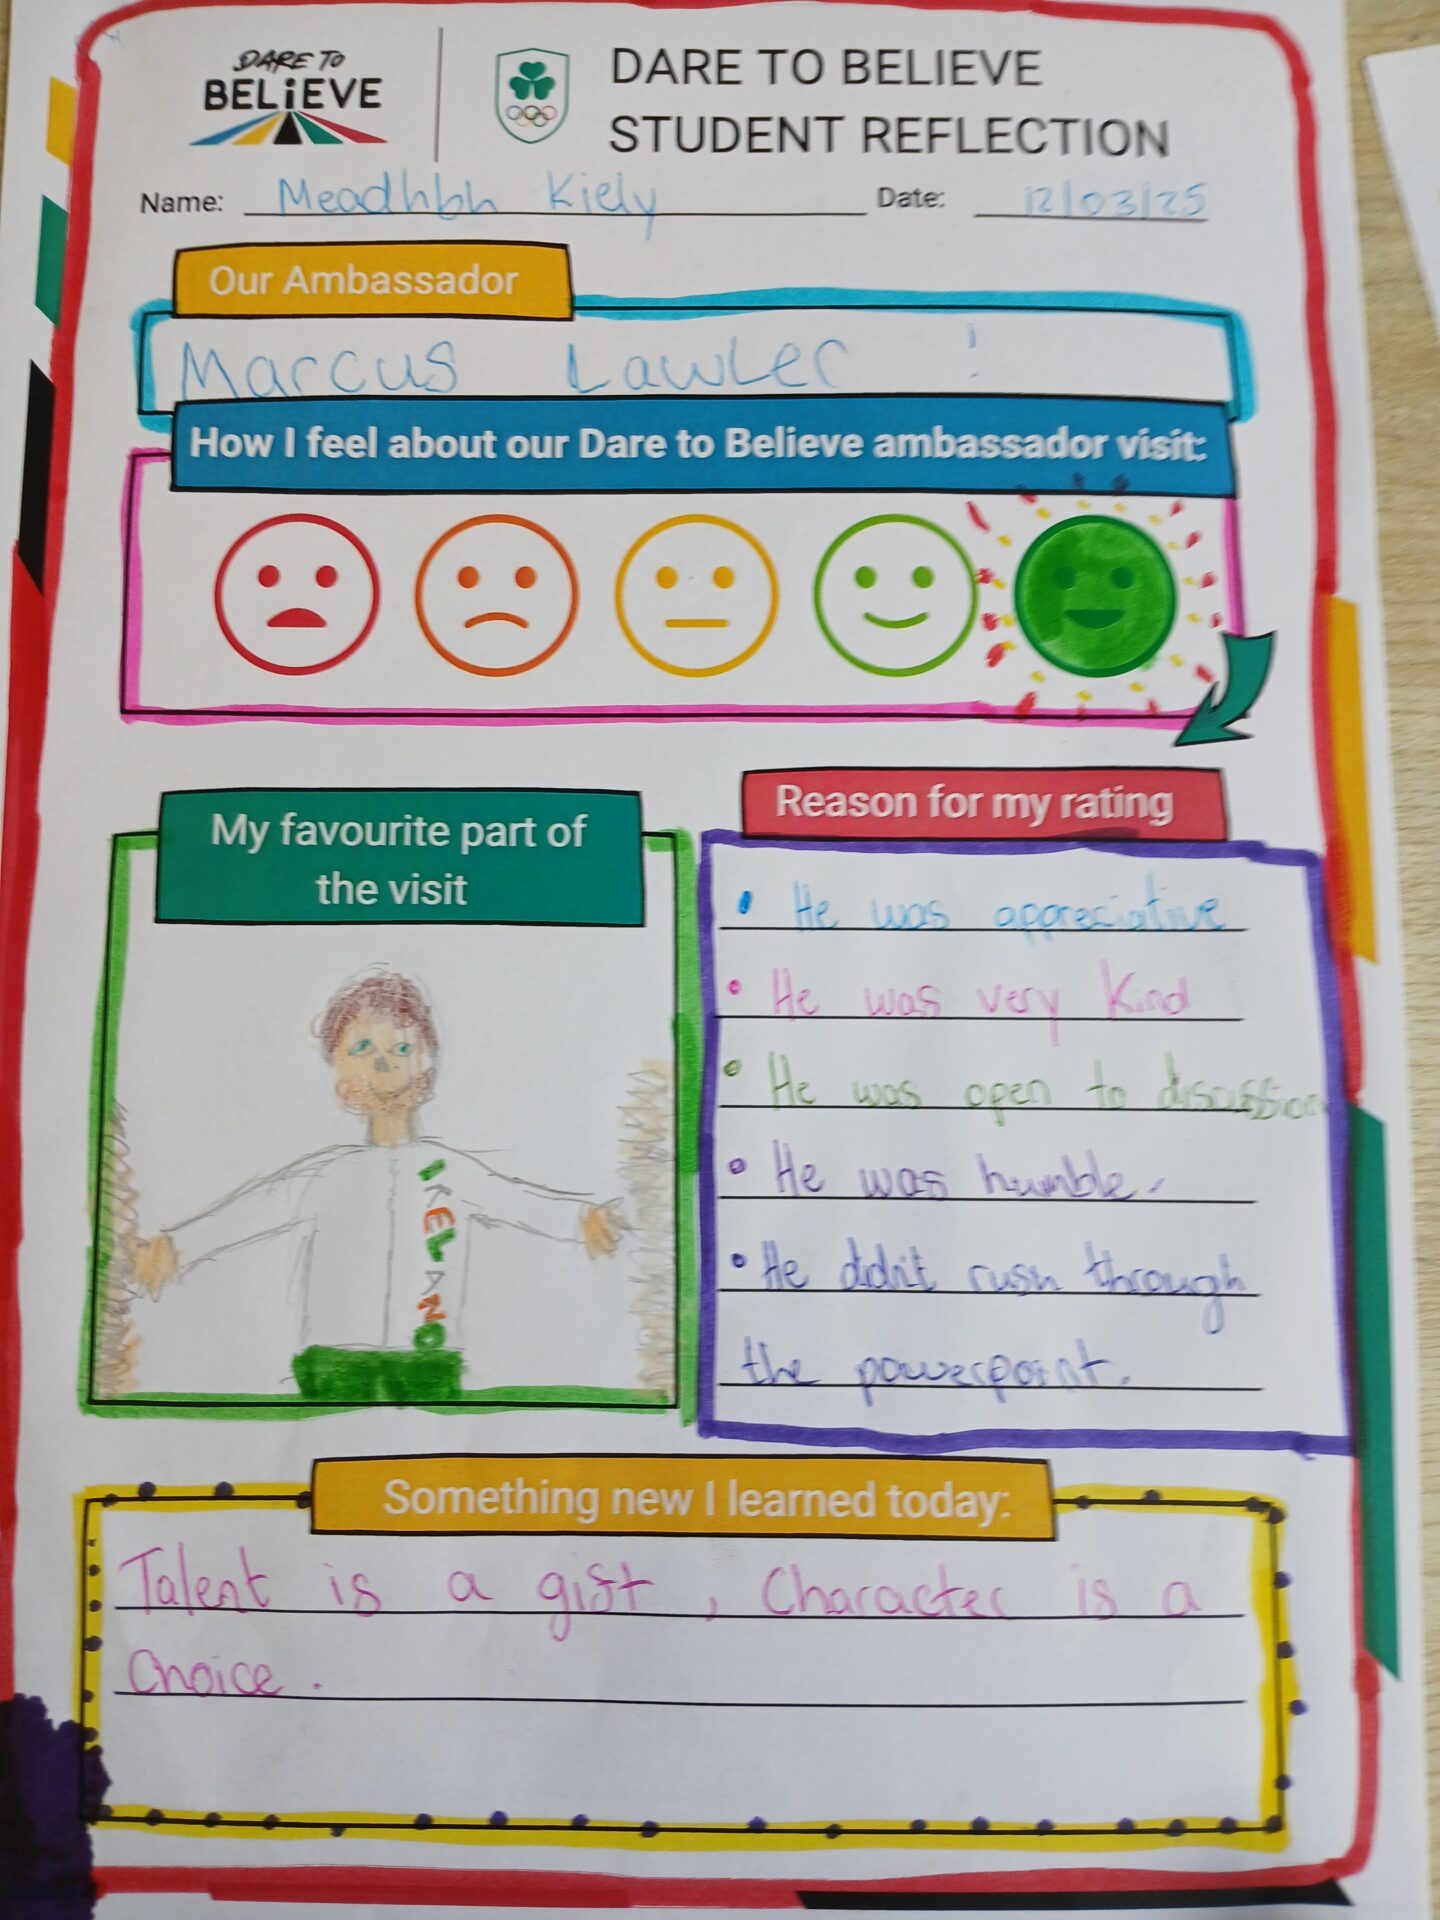 DARE TO
BELiEVE
DARE TO BELIEVE
STUDENT REFLECTION
Name: Meadhbh Kiely Date: 12/03/25
Our Ambassador
Marcus Lawler !
How I feel about our Dare to Believe ambassador visit:
My favourite part of
the visit
IRELAND
Reason for my rating
• He was appreciative
• He was very kind
• He was open to discussion
• He was humble.
• He didn't rush through
the powerpoint.
Something new I learned today:
Talent is a gift, Character is a
Choice.